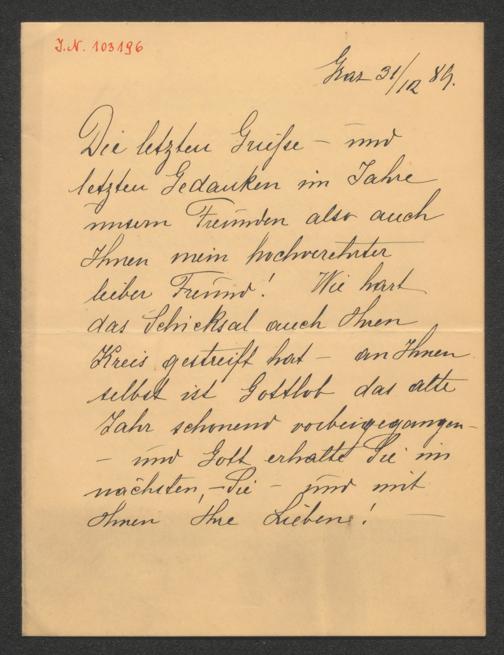 J.N. 103196
Graz 31/12 89.
Die letzten Grüße – und
letzten Gedanken im Jahre
unsern Freunden also auch
Ihnen mein hochverehrter
lieber Freund! Wie hart
das Schicksal auch Ihren
Kreis gestreift hat – an Ihnen
selbst ist Gottlob das alte
Jahr schonend vorbeigegangen –
– und Gott erhalte Sie im
nächsten, – Sie – und mit
Ihnen Ihre Lieben! –